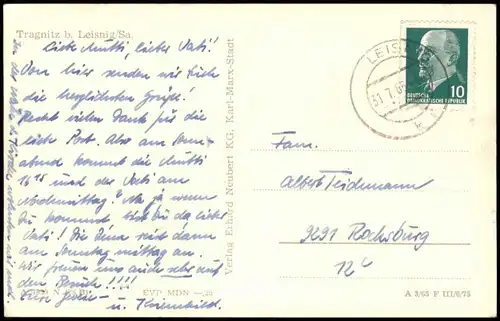 Tragnitz b. Leisnig/Sa.
Liebe Mutti, lieber Vati!
Von hier senden wir Euch
die herzlichsten Grüße!
Recht vielen Dank für die
liebe Post. Also am Sonn-
abend kommt die Mutti
16 15 und der Vati am
Nachmittag? Na ja wenn
Du kommst bist Du da lieber
Vati! Die seid dann
am Sonntag mittag an.
Wir freuen uns auch sehr auf
den Besuch!!!!
Eure
u.
EVP MDN
Verlag Erhard Neubert KG, Karl-Marx-Stadt
LEISNIG
31.7.65
10
DEUTSCHE
DEMOKRATISCHE REPUBLIK
Fam.
Albert Teichmann
9291 Rochsburg
12c
A 3/65 F III/6/75